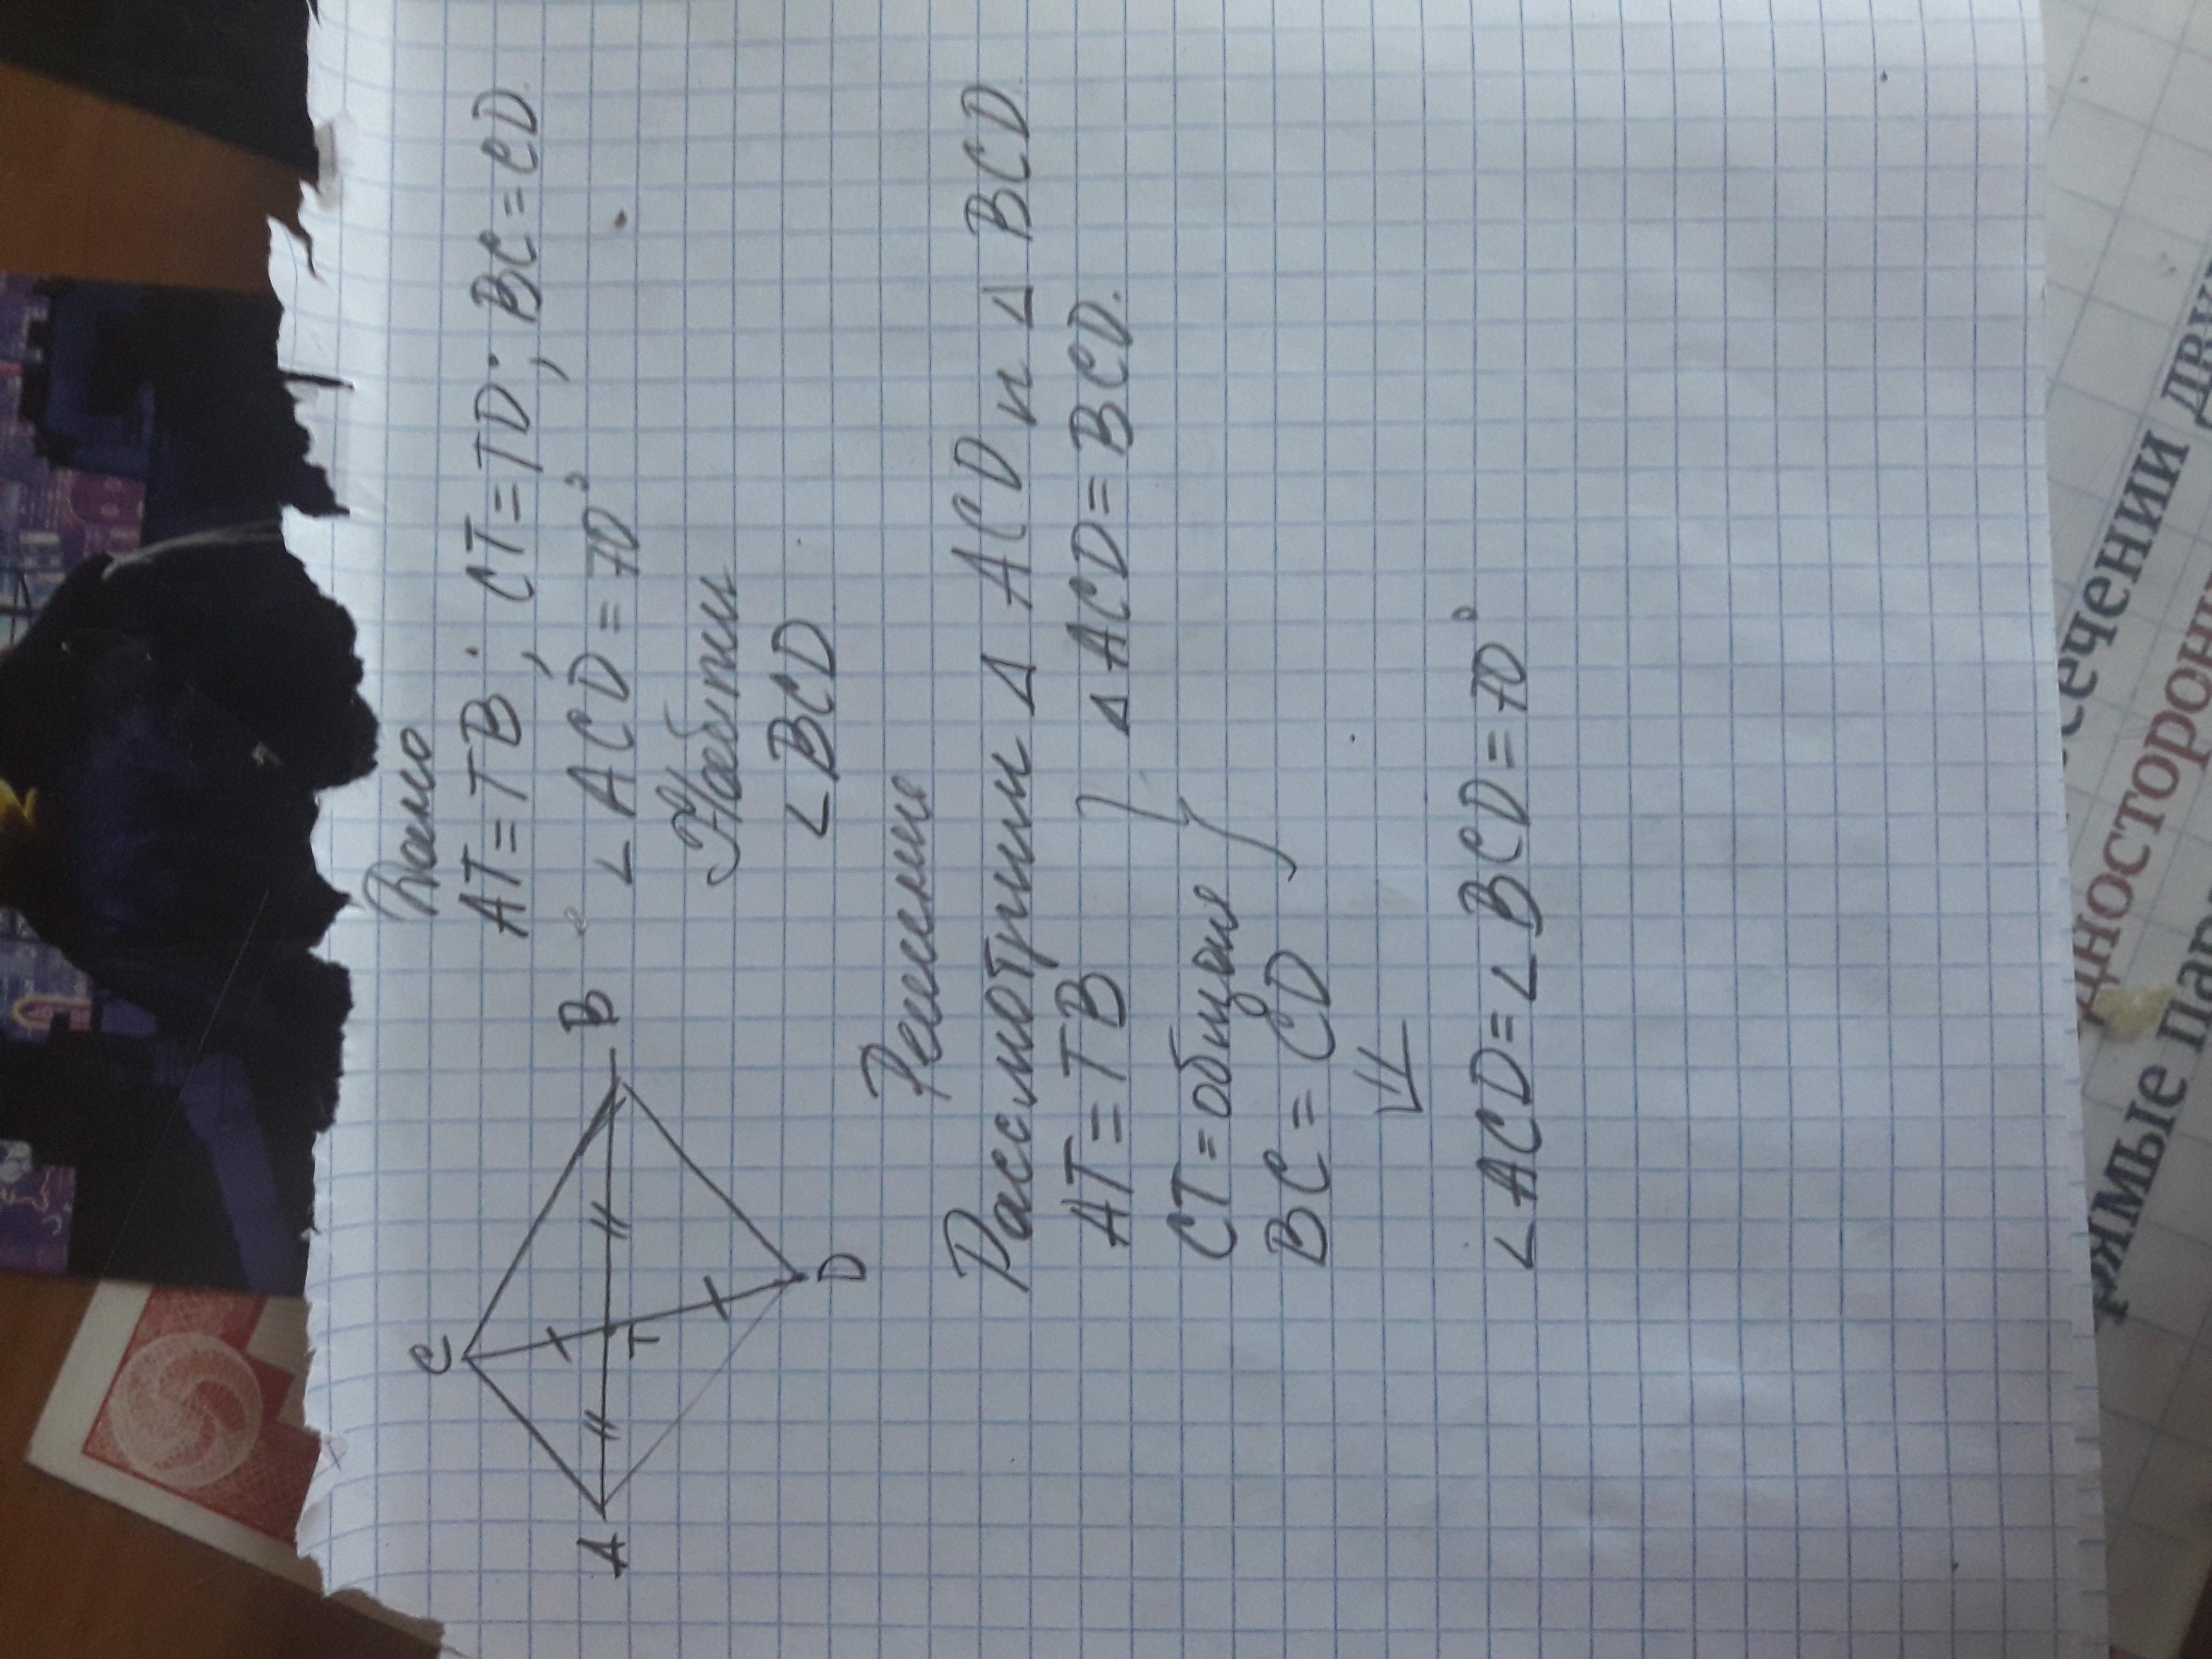 Дано
AT=TB; CT=TD; BC=CD
∠ACD=70°
Найти
∠BCD
C
A
B
T
D
Решение
Рассмотрим Δ ACD и Δ BCD
AT=TB
CT=общая
BC=CD
Δ ACD=BCD.
⇓
∠ACD=∠BCD=70°
сечении
дносторонн
рямые пар